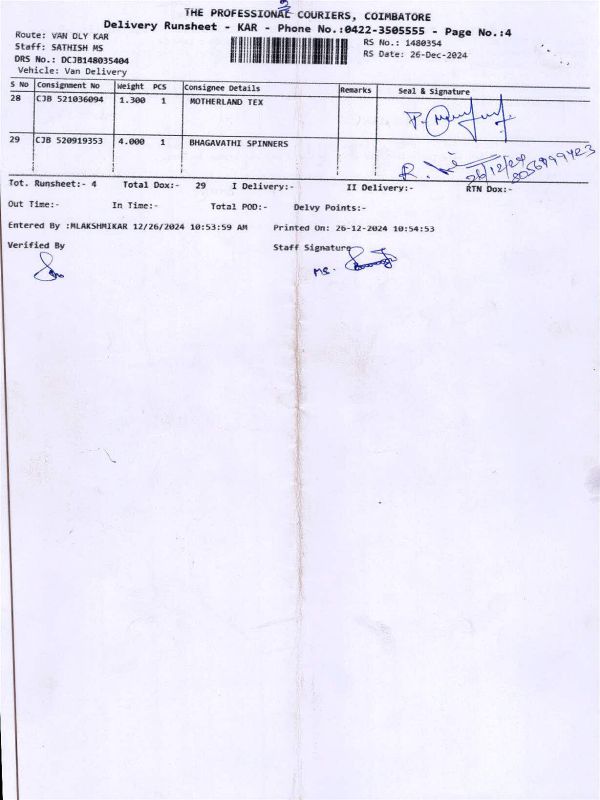 THE PROFESSIONAL COURIERS, COIMBATORE
Delivery Runsheet - KAR - Phone No.:0422-3505555 - Page No.:4
Route: VAN DLY KAR
RS No.: 1480354
Staff: SATHISH MS
RS Date: 26-Dec-2024
DRS No.: DCJB148035404
Vehicle: Van Delivery
S No Consignment No Weight PCS Consignee Details Remarks Seal & Signature
28 CJB 521036094 1.300 1 MOTHERLAND TEX
29 CJB 520919353 4.000 1 BHAGAVATHI SPINNERS
26/12/24
8056999423
Tot. Runsheet:- 4 Total Dox:- 29 I Delivery:- II Delivery:- RTN Dox:-
Out Time:- In Time:- Total POD:- Delvy Points:-
Entered By :MLAKSHMIKAR 12/26/2024 10:53:59 AM Printed On: 26-12-2024 10:54:53
Verified By Staff Signature
MS.